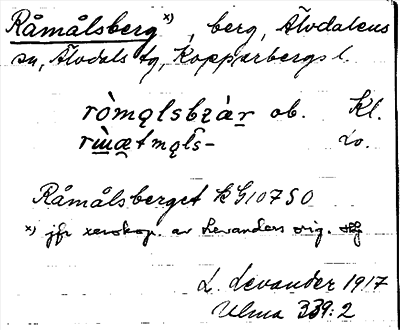 Råmålsberg x), berg, Älvdalens
sn, Älvdals tg, Kopparbergs l.
ròmǫlsbɛàr̲ ob. Kl.
rɯ̀æ̲tmǫls- Lo.
Råmålsberget K G10750
x) jfr xeroskop. av Levanders orig.
L. Levander 1917
Ulma 339:2